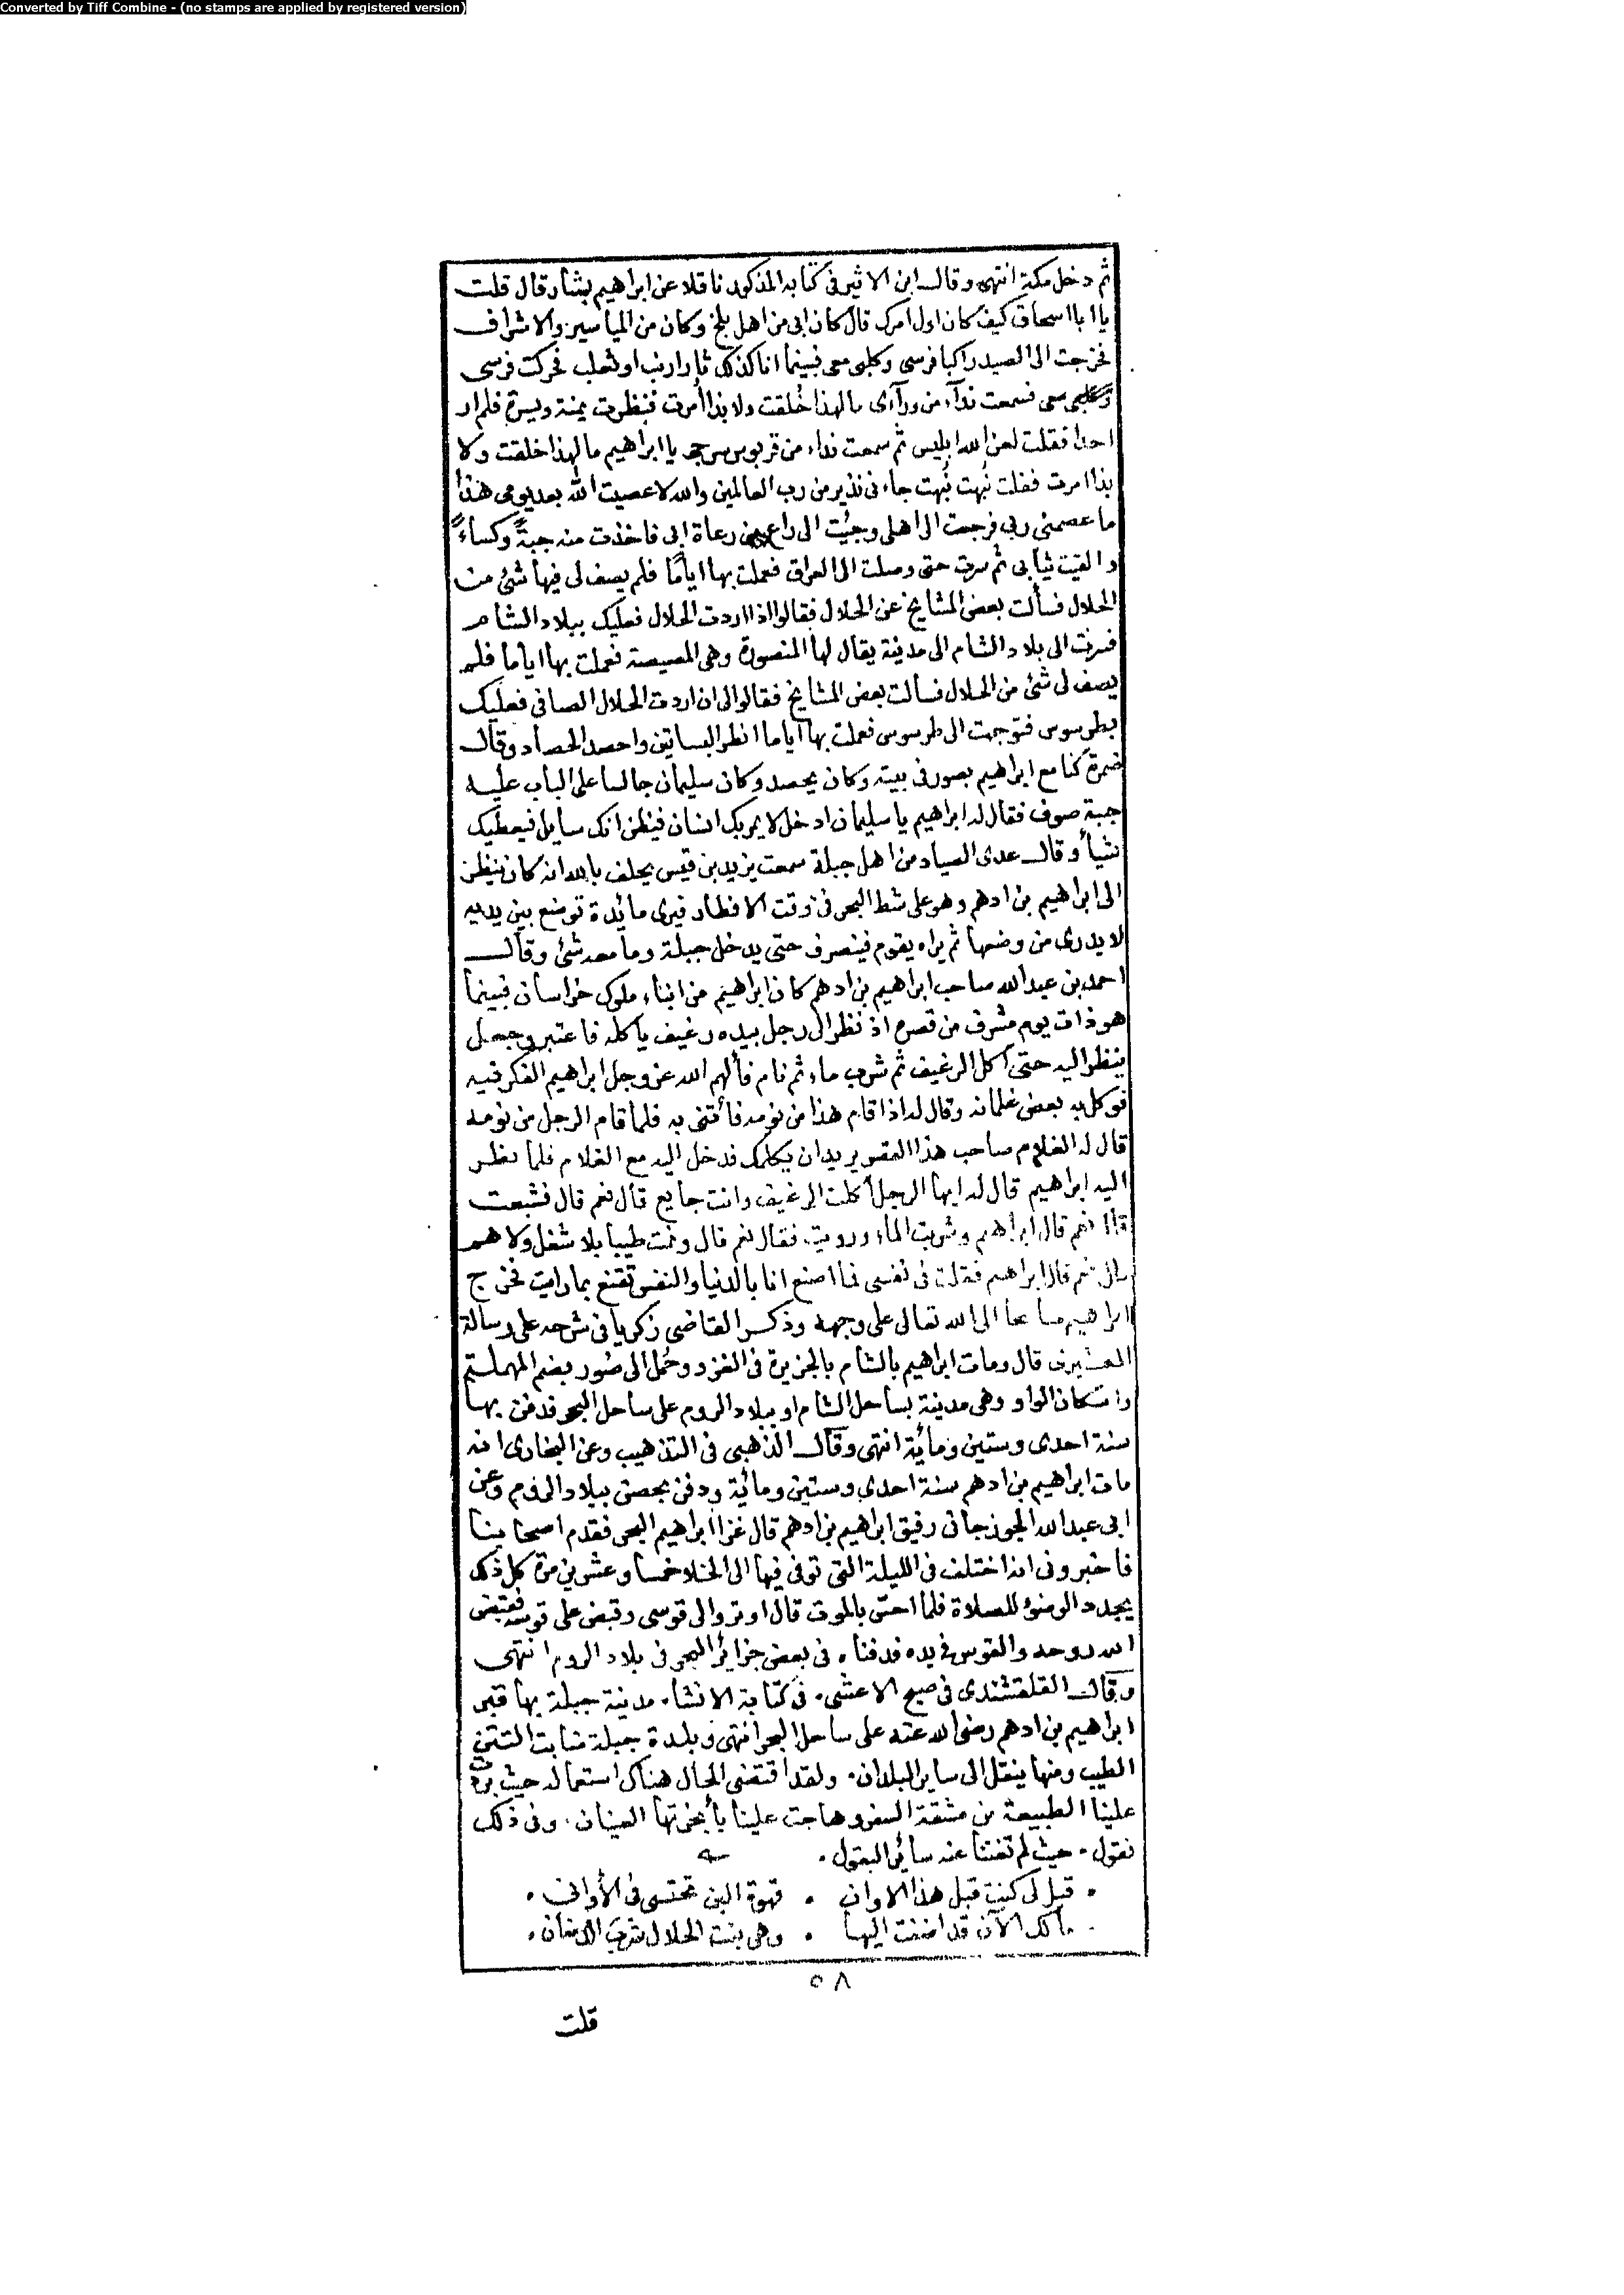 Converted by Tiff Combine - (no stamps are applied by registered version)
ثم دخل مكة انتهى وقال ابن الاثير فى كتابه المذكور ناقلا عن ابراهيم بشار قال قلت
يا ابا اسحاق كيف كان اول امرك قال كان ابى من اهل بلخ وكان من المياسير والاشراف
فخرجت الى الصيد راكبا فرسى وكلبى معى فبينما انا كذلك ثار ارنب او ثعلب فحركت فرسى
وكلبى معى فسمعت ندآء من ورآءى ما لهذا خُلقت ولا بذا أمرت فنظرت يمنة ويسرة فلم ار
احدا فقلت لعن الله ابليس ثم سمعت نداء من قربوس سرجى يا ابراهيم ما لهذا خلقت ولا
بذا امرت فقلت نُبهت نُبهت جاءنى نذير من رب العالمين والله لا عصيت الله بعد يومى هذا
ما عصمنى ربى فرجعت الى اهلى وجئت الى راع من رعاة ابى فاخذت منه جبةً وكساءً
والقيت ثيابى ثم سرت حتى وصلت الى العراق فعملت بها اياما فلم يصف لى فيها شئ من
الحلال فسألت بعض المشايخ عن الحلال فقالوا اذا اردت الحلال فعليك ببلاد الشام
فسرت الى بلاد الشام الى مدينة يقال لها المنصورة وهى المصيصة فعملت بها اياما فلم
يصف لى شئ من الحلال فسألت بعض المشايخ فقالوا لى ان اردت الحلال الصافى فعليك
بطرسوس فتوجهت الى طرسوس فعملت بها اياما انظر البساتين واحصد الحصاد وقال
ضمرة كنا مع ابراهيم بصور فى بيته وكان يحصد وكان سليمان جالسا على الباب عليه
جبة صوف فقال له ابراهيم يا سليمان ادخل لا يمر بك انسان فيظن انك سايل فيعطيك
شيأ وقال عدى الصياد من اهل جبلة سمعت يزيد بن قيس يحلف بالله انه كان ينظر
الى ابراهيم بن ادهم وهو على شط البحر فى وقت الافطار فيرى مائدة توضع بين يديه
لا يدرى من وضعها ثم يراه يقوم فينصرف حتى يدخل جبلة وما معه شئ وقال
احمد بن عبد الله صاحب ابراهيم بن ادهم كان ابراهيم من ابناء ملوك خراسان فبينما
هو ذات يوم مشرف من قصره اذ نظر الى رجل بيده رغيف ياكله فاعتبر وجعل
ينظر اليه حتى اكل الرغيف ثم شرب ماء ثم نام فألهم الله عز وجل ابراهيم الفكر فيه
فوكل به بعض غلمانه وقال له اذا قام هذا من نومه فأتنى به فلما قام الرجل من نومه
قال له الغلام صاحب هذا القصر يريد ان يكلمك فدخل اليه مع الغلام فلما نظر
اليه ابراهيم قال له ايها الرجل أكلت الرغيف وانت جايع قال نعم قال فشبعت
قال نعم قال ابراهيم وشربت الماء ورويت فقال نعم قال ونمت طيبا بلا شغل ولا هم
قال نعم قال ابراهيم فقلت فى نفسى فما اصنع انا بالدنيا والنفس تقنع بما رايت فخرج
ابراهيم سائحا الى الله تعالى على وجهه وذكر القاضى زكريا فى شرحه على رسالة
القشيرى قال ومات ابراهيم بالشام بالجزيرة فى الغزو وحُمل الى صُور بضم المهملة
واسكان الواو وهى مدينة بساحل الشام او ببلاد الروم على ساحل البحر فدفن بها
سنة احدى وستين ومائة انتهى وقال الذهبى فى التذهيب وعن البخارى انه
مات ابراهيم بن ادهم سنة احدى وستين ومائة ودفن بحصن ببلاد الروم وعن
ابى عبد الله الجوزجانى رفيق ابراهيم بن ادهم قال غزا ابراهيم البحر فقدم اصحابنا
فاخبرونى انه اختلف فى الليلة التى توفى فيها الى الخلا خمسا وعشرين مرة كل ذلك
يجدد الوضوء للصلاة فلما احس بالموت قال اوتروا لى قوسى وقبض على قوسه فقبض
الله روحه والقوس فى يده فدفناه فى بعض جزائر البحر فى بلاد الروم انتهى
وقال القلقشندى فى صبح الاعشى. فى كتابة الانشاء مدينة جبلة بها قبر
ابراهيم بن ادهم رضى الله عنه على ساحل البحر انتهى وبلدة جبلة منابت التتن
الطيب ومنها ينقل الى ساير البلدان. ولقد اقتضى الحال هناك استعماله حيث بردت
علينا الطبيعة من مشقة السفر وهاجت علينا بأبخرتها العينان. وفى ذلك
نقول. حيث لم تغننا عنه سائر البقول.
. قيل لى كنت قبل هذا الاوان . قهوة البن تحتسى فى الأوانى .
. مالك الآن قد اضفت اليها . وهى بنت الحلال شرب الدخان .
٥٨
قلت